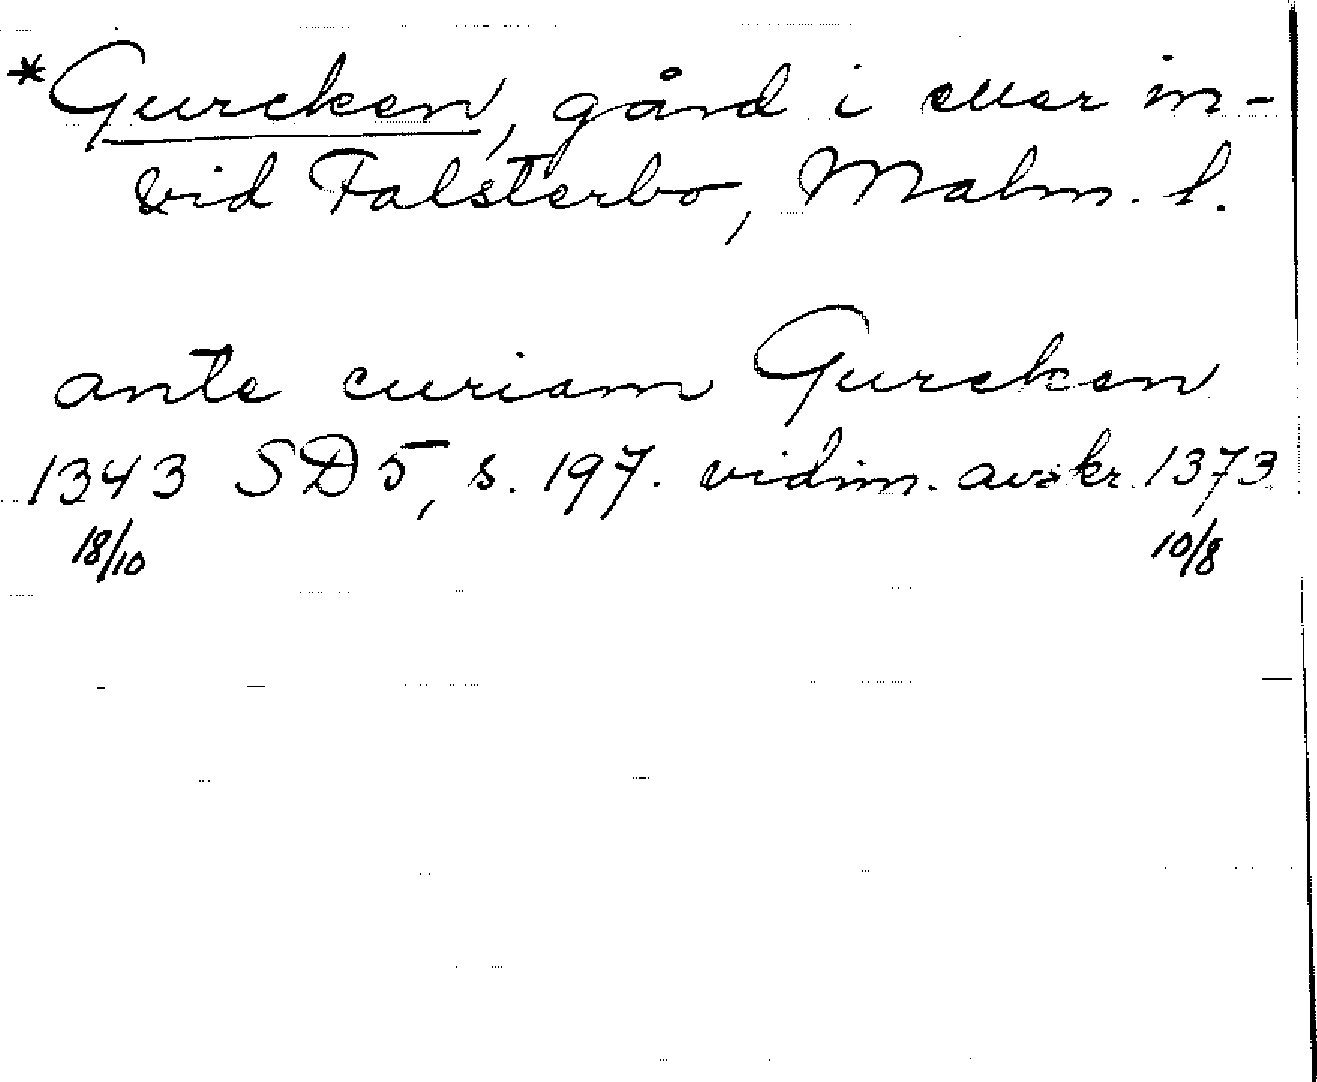 *Gurcken, gård i eller in-
vid Falsterbo, Malm. l.
ante curiam Gurcken
1343 SD 5, s. 197. vidim. avskr. 1373
18/10 10/8